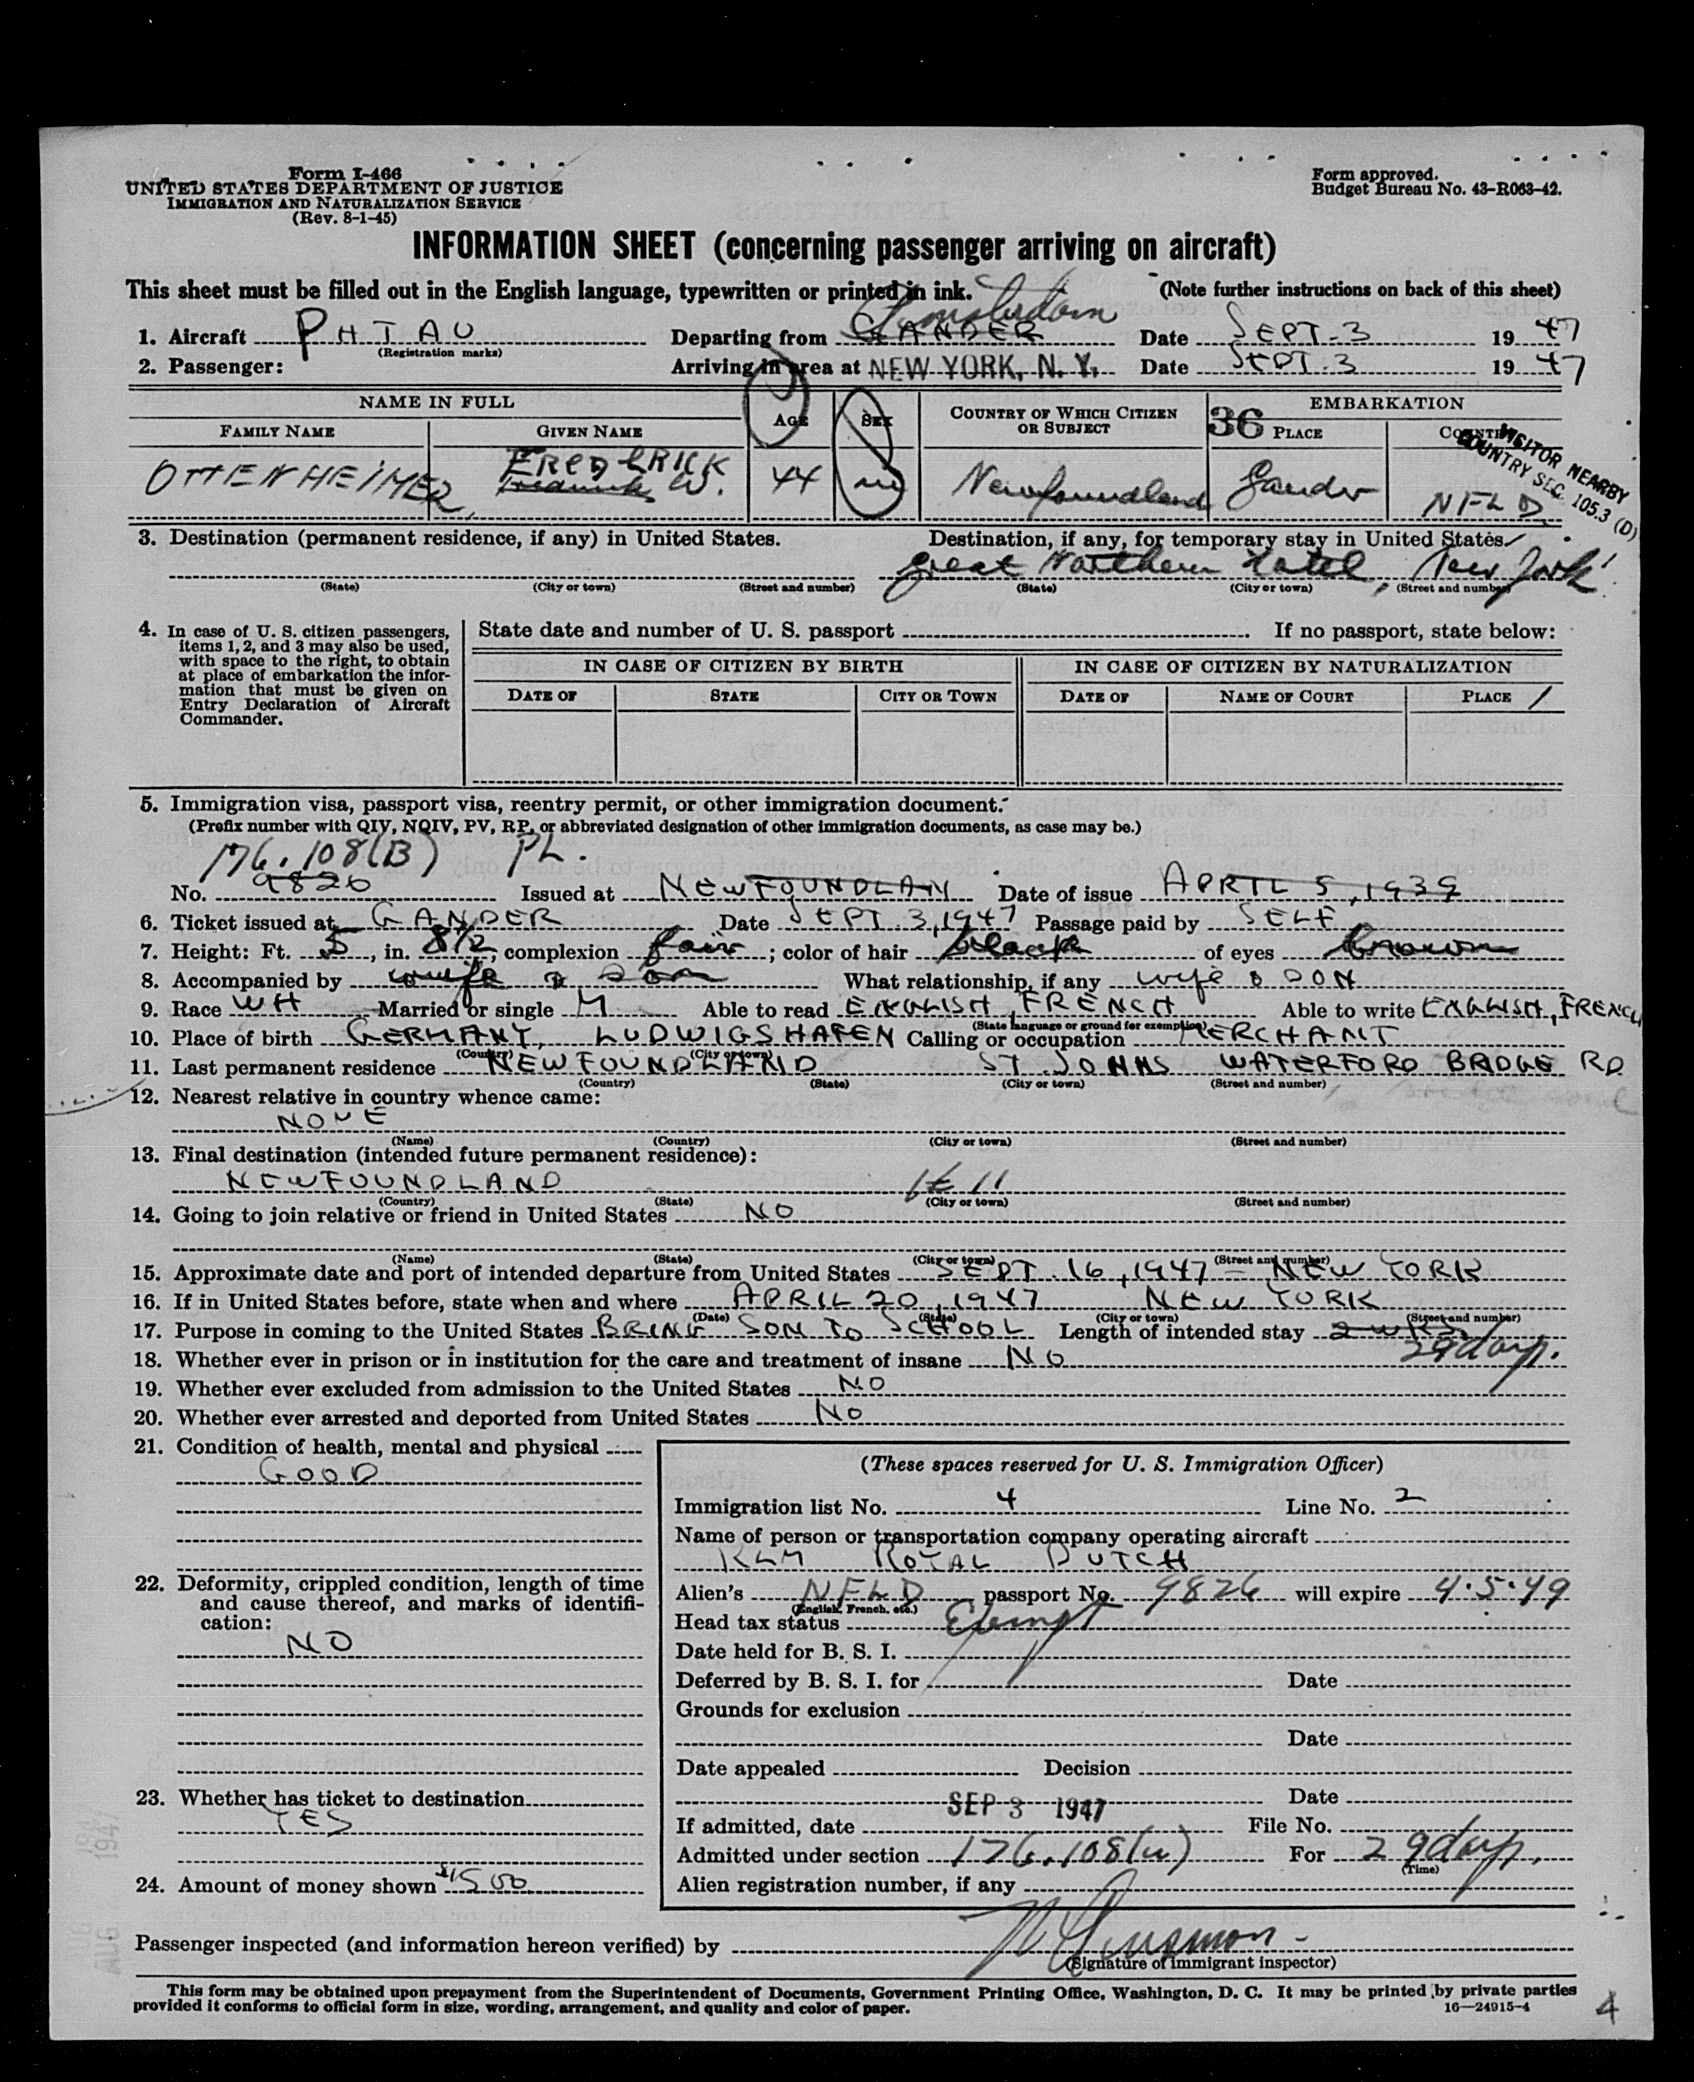 Form I-466
UNITED STATES DEPARTMENT OF JUSTICE
IMMIGRATION AND NATURALIZATION SERVICE
(Rev. 8-1-45)
Form approved.
Budget Bureau No. 43-R063-42.
INFORMATION SHEET (concerning passenger arriving on aircraft)
This sheet must be filled out in the English language, typewritten or printed in ink. (Note further instructions on back of this sheet)
Amsterdam
1. Aircraft PHTAU Departing from GANDER Date SEPT. 3 19 47
(Registration marks)
2. Passenger: Arriving in area at NEW YORK, N. Y. Date SEPT. 3 19 47
NAME IN FULL AGE SEX COUNTRY OF WHICH CITIZEN OR SUBJECT 36 EMBARKATION
FAMILY NAME GIVEN NAME PLACE COUNTRY
VISITOR NEARBY
COUNTRY SEC. 105.3 (D)
FREDERICK
OTTENHEIMER, Frederick W. 44 m Newfoundland Gander NFLD
3. Destination (permanent residence, if any) in United States. Destination, if any, for temporary stay in United States
Great Northern Hotel, New York
(State) (City or town) (Street and number) (State) (City or town) (Street and number)
4. In case of U. S. citizen passengers, items 1, 2, and 3 may also be used, with space to the right, to obtain at place of embarkation the information that must be given on Entry Declaration of Aircraft Commander.
State date and number of U. S. passport If no passport, state below:
IN CASE OF CITIZEN BY BIRTH IN CASE OF CITIZEN BY NATURALIZATION
DATE OF STATE CITY OR TOWN DATE OF NAME OF COURT PLACE
5. Immigration visa, passport visa, reentry permit, or other immigration document.
(Prefix number with QIV, NQIV, PV, RP, or abbreviated designation of other immigration documents, as case may be.)
176.108(B) PL.
No. 9826 Issued at NEWFOUNDLAN Date of issue APRIL 5, 1939
6. Ticket issued at GANDER Date SEPT. 3, 1947 Passage paid by SELF
7. Height: Ft. 5, in. 8 1/2, complexion fair; color of hair black of eyes brown
8. Accompanied by wife & son What relationship, if any wife & SON
9. Race WH Married or single M Able to read ENGLISH, FRENCH Able to write ENGLISH, FRENCH
(State language or ground for exemption)
10. Place of birth GERMANY, LUDWIGSHAFEN Calling or occupation MERCHANT
(Country) (City or town)
11. Last permanent residence NEWFOUNDLAND ST. JOHNS WATERFORD BRIDGE RD
(Country) (State) (City or town) (Street and number)
12. Nearest relative in country whence came:
NONE
(Name) (Country) (City or town) (Street and number)
13. Final destination (intended future permanent residence):
NEWFOUNDLAND
(Country) (State) (City or town) (Street and number)
14. Going to join relative or friend in United States NO
(Name) (State) (City or town) (Street and number)
15. Approximate date and port of intended departure from United States SEPT. 16, 1947 – NEW YORK
16. If in United States before, state when and where APRIL 20, 1947 NEW YORK
(Date) (State) (City or town) (Street and number)
17. Purpose in coming to the United States BRING SON TO SCHOOL Length of intended stay 2 WKS.
29 days.
18. Whether ever in prison or in institution for the care and treatment of insane NO
19. Whether ever excluded from admission to the United States NO
20. Whether ever arrested and deported from United States NO
21. Condition of health, mental and physical
GOOD
22. Deformity, crippled condition, length of time and cause thereof, and marks of identification:
NO
23. Whether has ticket to destination
YES
24. Amount of money shown $1500
(These spaces reserved for U. S. Immigration Officer)
Immigration list No. 4 Line No. 2
Name of person or transportation company operating aircraft
KLM ROYAL DUTCH
Alien's NFLD passport No. 9826 will expire 4.5.49
(English, French, etc.)
Head tax status Exempt
Date held for B. S. I.
Deferred by B. S. I. for Date
Grounds for exclusion
Date
Date appealed Decision
Date
SEP 3 1947
If admitted, date File No.
Admitted under section 176.108(u) For 29 days.
(Time)
Alien registration number, if any
Passenger inspected (and information hereon verified) by
(Signature of immigrant inspector)
This form may be obtained upon prepayment from the Superintendent of Documents, Government Printing Office, Washington, D. C. It may be printed by private parties
provided it conforms to official form in size, wording, arrangement, and quality and color of paper. 16—24915-4
4